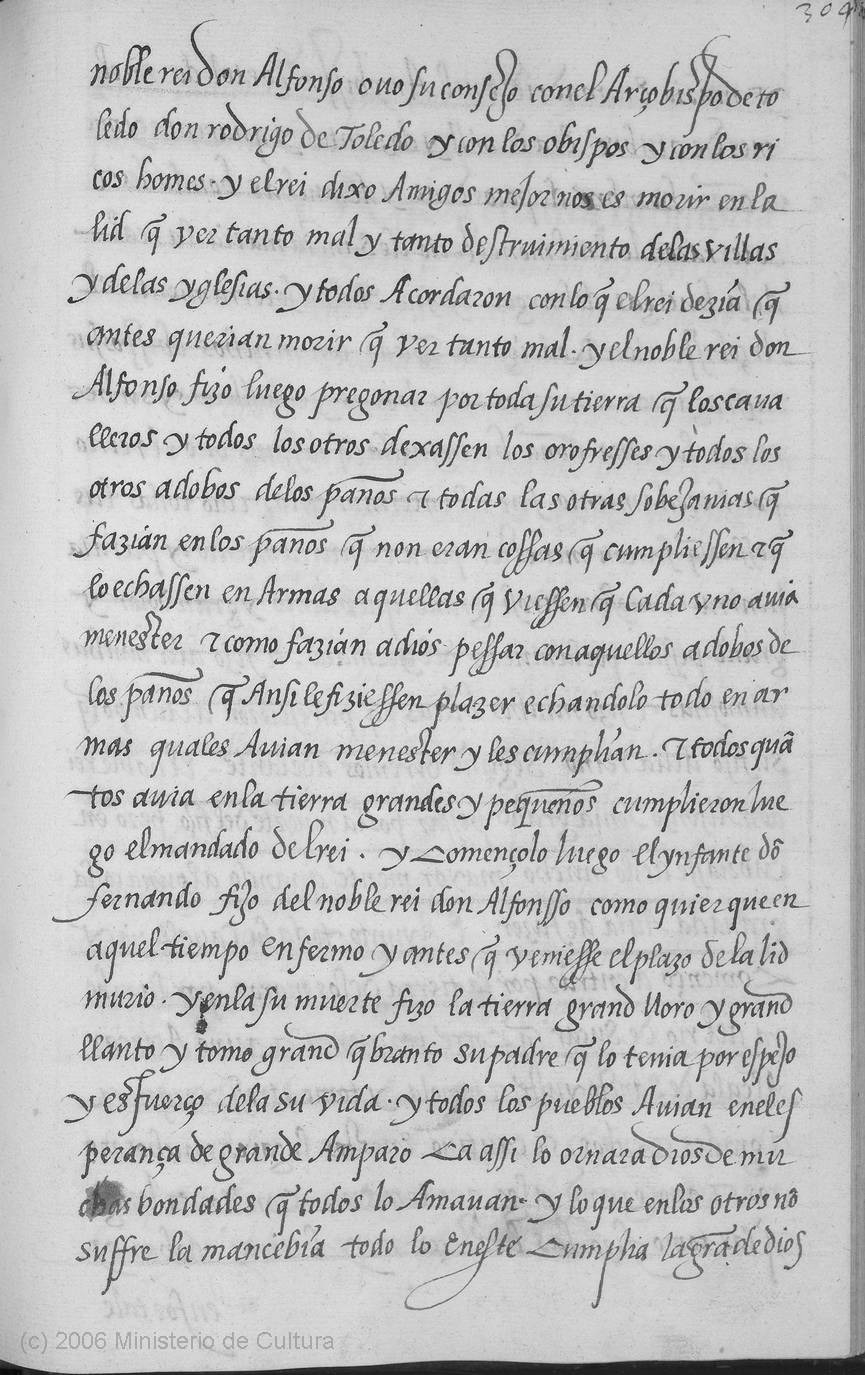 304
noble rei don Alfonso ovo su consejo con el Arçobispo de to
ledo don rodrigo de Toledo y con los obispos y con los ri
cos homes. y el rei dixo Amigos mejor nos es morir en la
lid q̃ ver tanto mal y tanto destruimiento delas villas
y delas yglesias. y todos Acordaron con lo q̃ el rei dezia q̃
antes querian morir q̃ ver tanto mal. y el noble rei don
Alfonso fizo luego pregonar por toda su tierra q̃ los cava
lleros y todos los otros dexassen los orofresses y todos los
otros adobos delos paños τ todas las otras sobejanias q̃
fazian en los paños q̃ non eran cossas q̃ cumpliessen τ q̃
lo echassen en Armas aquellas q̃ viessen q̃ Cada vno avia
menester τ como fazian a dios pessar con aquellos adobos de
los paños q̃ Ansi le fiziessen plazer echandolo todo en ar
mas quales Avian menester y les cumplian. τ todos quã
tos avia en la tierra grandes y pequeños cumplieron lue
go el mandado del rei. y Començolo luego el ynfante dõ
fernando fijo del noble rei don Alfonsso como quier que en
aquel tiempo enfermo y antes q̃ veniesse el plazo de la lid
murio. y en la su muerte fizo la tierra grand lloro y grand
llanto y tomo grand q̃branto su padre q̃ lo tenia por espejo
y esfuerço dela su vida. y todos los pueblos Avian en el es
perança de grande Amparo Ca assi lo ornara dios de mu
chas bondades q̃ todos lo Amavan. y lo que en los otros nõ
suffre la mancebia todo lo eneste Cumplia la grã de dios
(c) 2006 Ministerio de Cultura